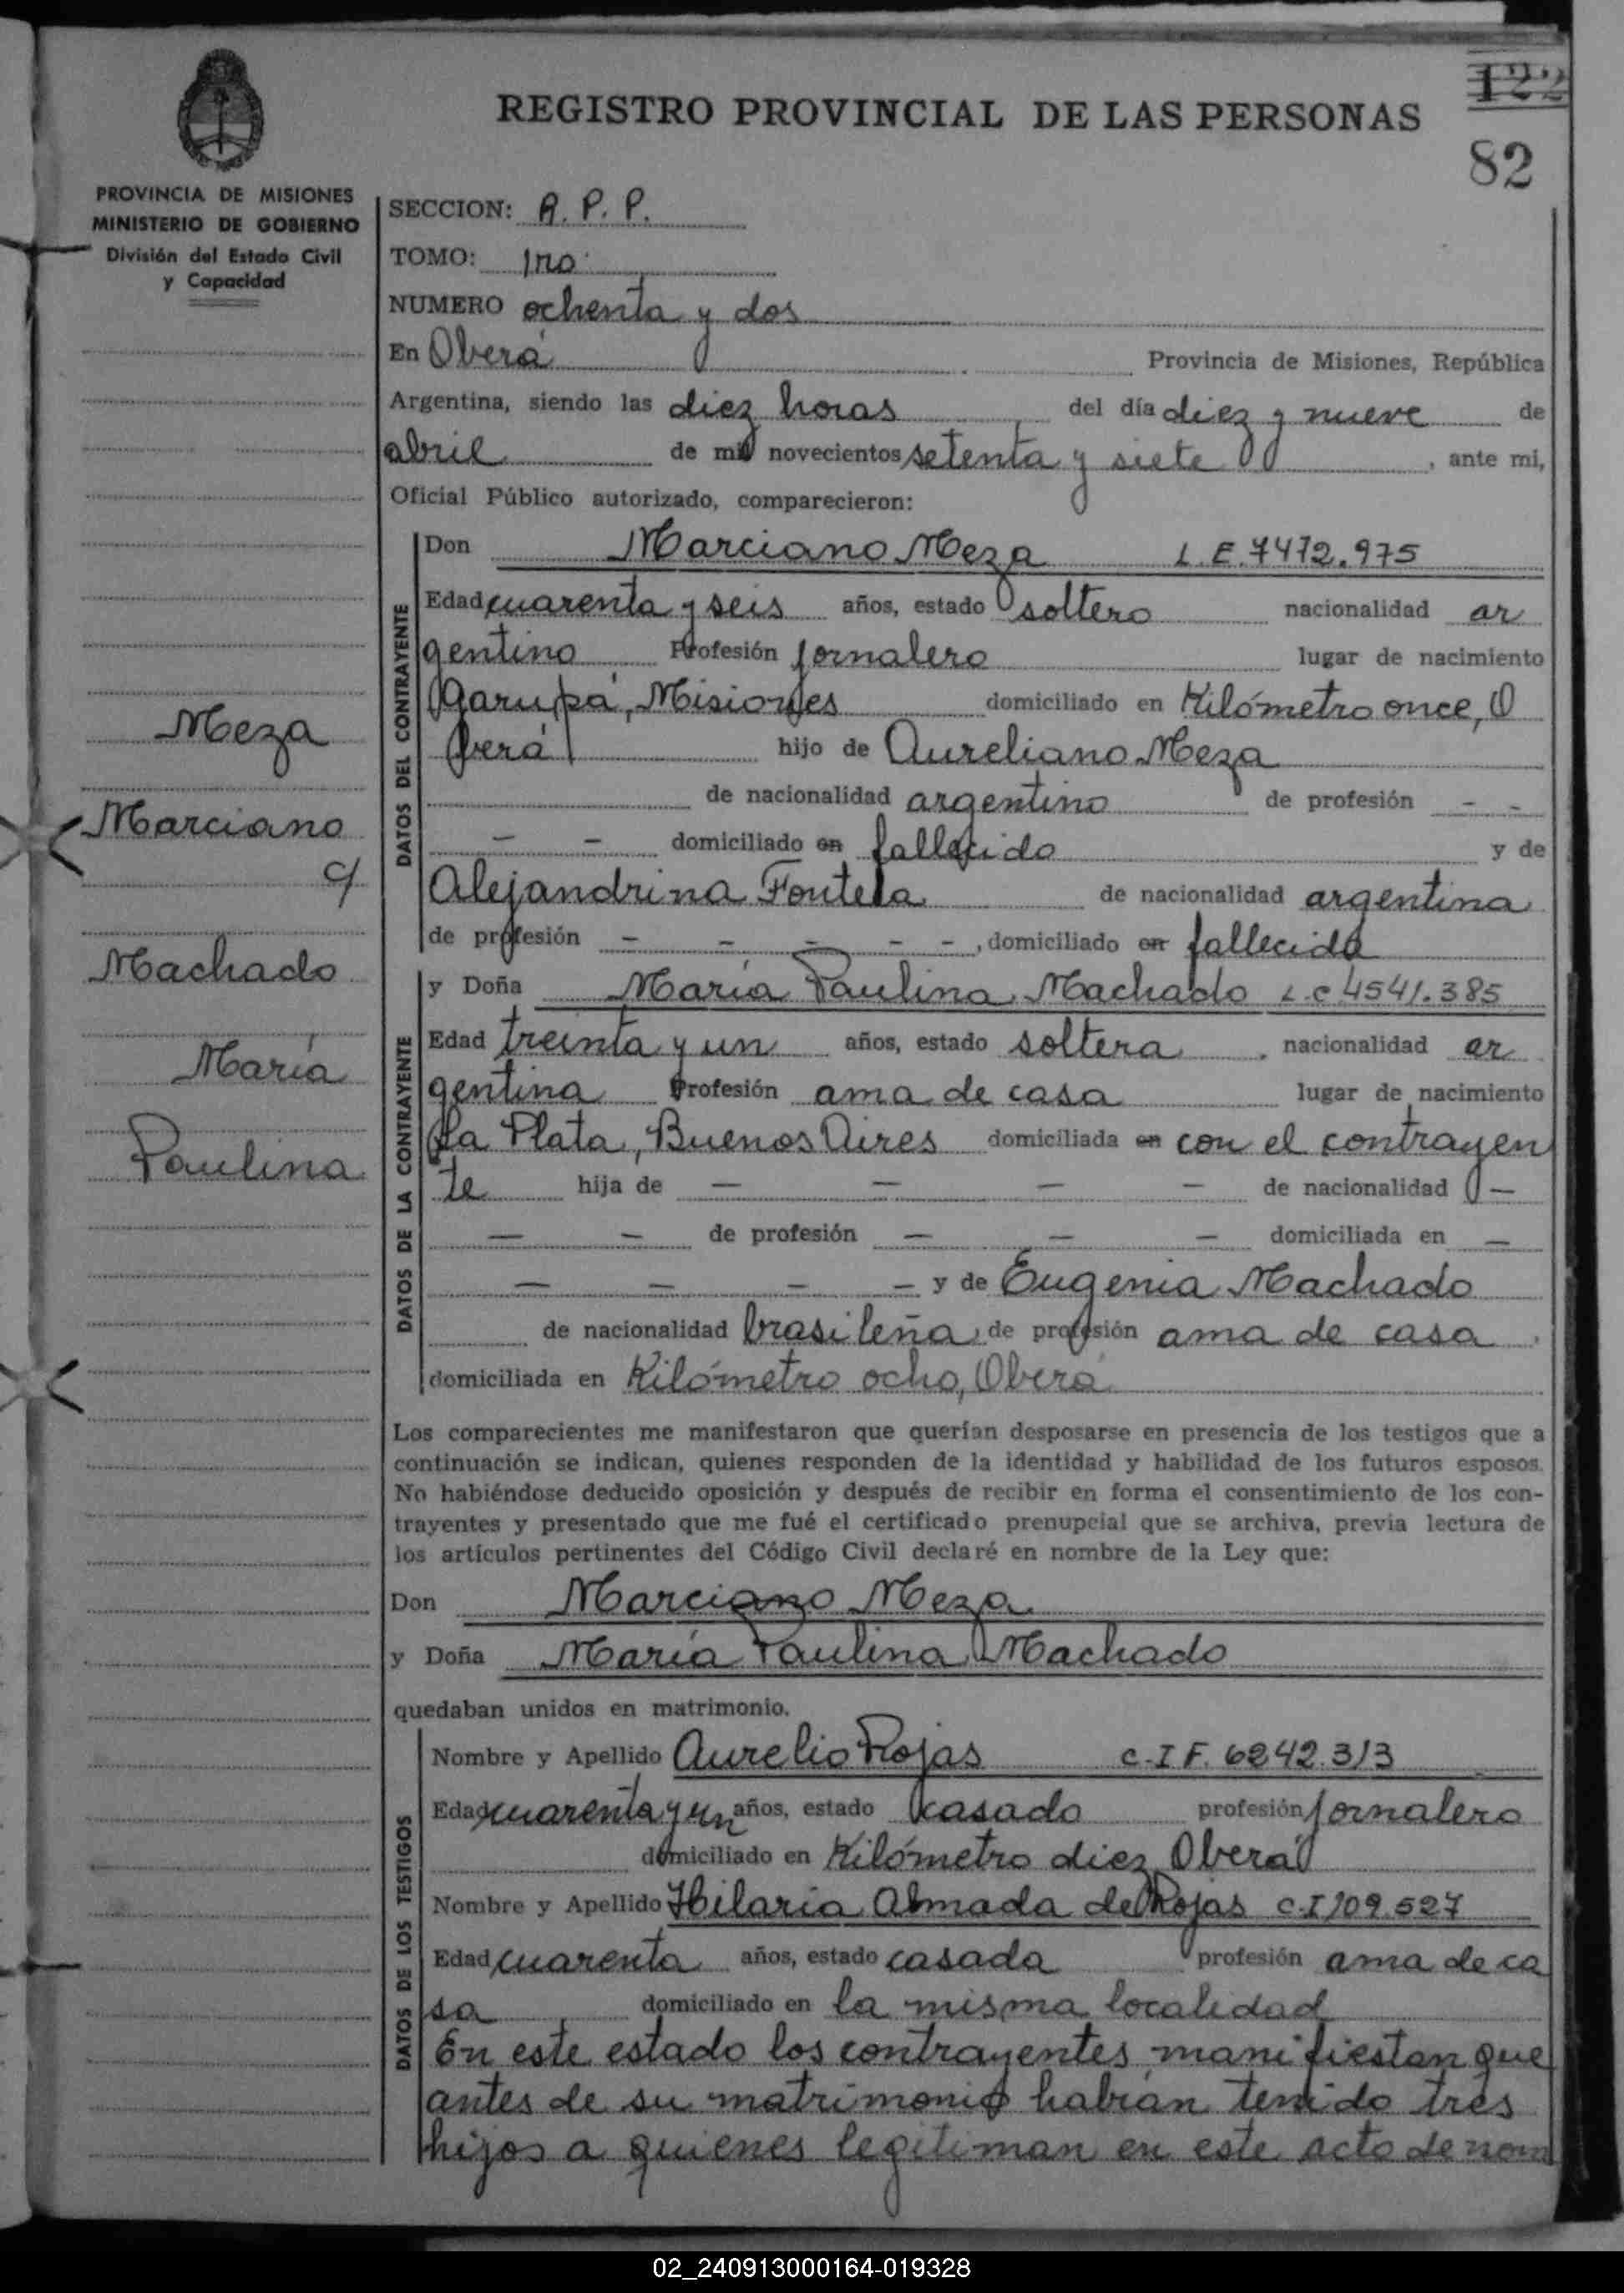 122
REGISTRO PROVINCIAL DE LAS PERSONAS
82
PROVINCIA DE MISIONES
MINISTERIO DE GOBIERNO
División del Estado Civil
y Capacidad
Meza
Marciano
c/
Machado
María
Paulina
SECCION: A. P. P.
TOMO: 1ro
NUMERO ochenta y dos
En Oberá Provincia de Misiones, República
Argentina, siendo las diez horas del día diez y nueve de
abril de mil novecientos setenta y siete, ante mi,
Oficial Público autorizado, comparecieron:
DATOS DEL CONTRAYENTE
Don Marciano Meza L.E. 7472.975
Edad cuarenta y seis años, estado soltero nacionalidad ar
gentino Profesión jornalero lugar de nacimiento
Garupá, Misiones domiciliado en Kilómetro once, O
berá hijo de Aureliano Meza
de nacionalidad argentino de profesión - -
- - domiciliado en fallecido y de
Alejandrina Fontela de nacionalidad argentina
de profesión - - - - -, domiciliado en fallecida
DATOS DE LA CONTRAYENTE
y Doña María Paulina Machado L.C 4541.385
Edad treinta y un años, estado soltera, nacionalidad ar
gentina Profesión ama de casa lugar de nacimiento
La Plata, Buenos Aires domiciliada en con el contrayen
te hija de — — — — de nacionalidad —
— — de profesión — — — domiciliada en —
— — — — y de Eugenia Machado
de nacionalidad brasileña de profesión ama de casa,
domiciliada en Kilómetro ocho, Oberá
Los comparecientes me manifestaron que querían desposarse en presencia de los testigos que a
continuación se indican, quienes responden de la identidad y habilidad de los futuros esposos.
No habiéndose deducido oposición y después de recibir en forma el consentimiento de los con-
trayentes y presentado que me fué el certificado prenupcial que se archiva, previa lectura de
los artículos pertinentes del Código Civil declaré en nombre de la Ley que:
Don Marciano Meza
y Doña María Paulina Machado
quedaban unidos en matrimonio.
DATOS DE LOS TESTIGOS
Nombre y Apellido Aurelio Rojas C.I F. 6242.313
Edad cuarenta y un años, estado casado profesión jornalero
domiciliado en Kilómetro diez, Oberá
Nombre y Apellido Hilaria Almada de Rojas C.I 109.527
Edad cuarenta años, estado casada profesión ama de ca
sa domiciliado en la misma localidad
En este estado los contrayentes manifiestan que
antes de su matrimonio habían tenido tres
hijos a quienes legitiman en este acto de nom
02_240913000164-019328